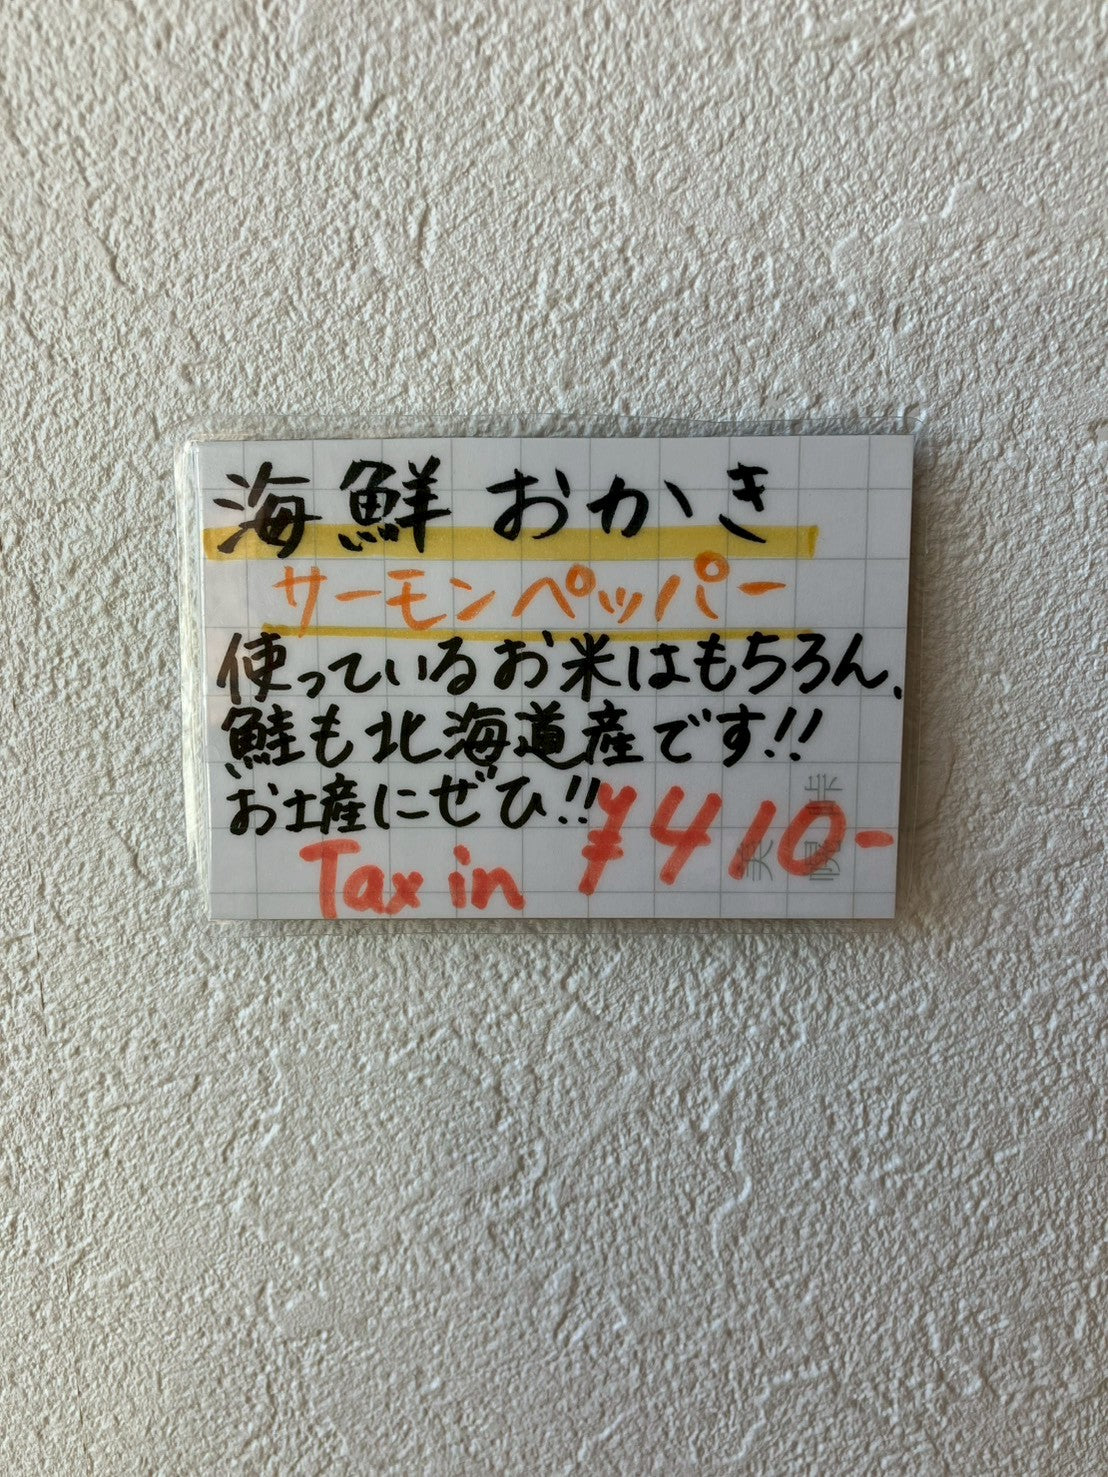 海鮮おかき
サーモンペッパー
使っているお米はもちろん、
鮭も北海道産です!!
お土産にぜひ!!
Tax in ¥410-